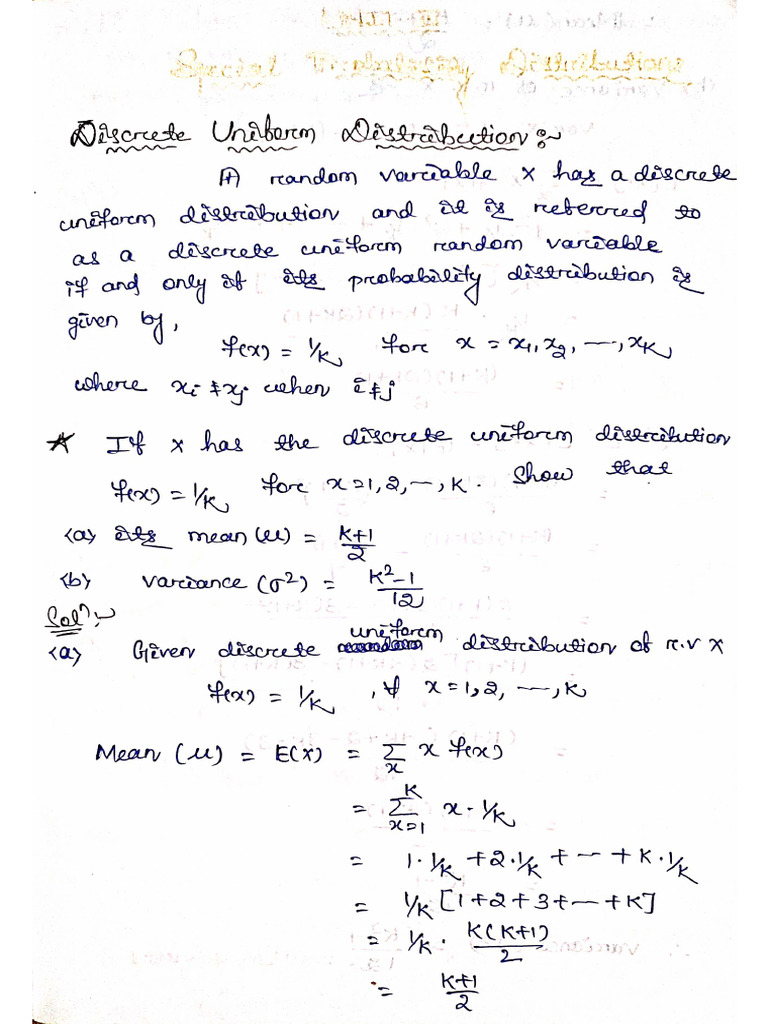 Special Probability Distributions
Discrete Uniform Distribution :~
A random variable x has a discrete
uniform distribution and it is referred to
as a discrete uniform random variable
if and only if its probability distribution is
given by,
f(x) = 1/K, for x = x₁, x₂, ---, xK,
where xi ≠ xj when i ≠ j
* If x has the discrete uniform distribution
f(x) = 1/K, for x=1, 2, --, K. Show that
(a) its mean (μ) = (K+1)/2
(b) variance (σ²) = (K²-1)/12
Solⁿ:-
(a) Given discrete uniform distribution of r.v x
f(x) = 1/K, ∀ x=1, 2, ---, K
Mean (μ) = E(x) = Σ_x x f(x)
= Σ_{x=1}^{K} x · 1/K
= 1·1/K + 2·1/K + -- + K·1/K
= 1/K [1+2+3+--+K]
= 1/K · K(K+1)/2
= (K+1)/2